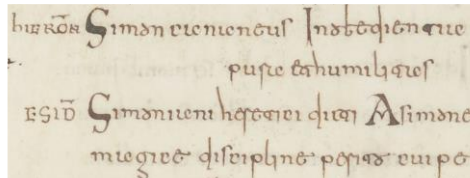 HIERON̄ Simon Inobedientie
et humilitas
ESID̄ Simoniieni heretici dicti A simone
magice discipline perito cui pe